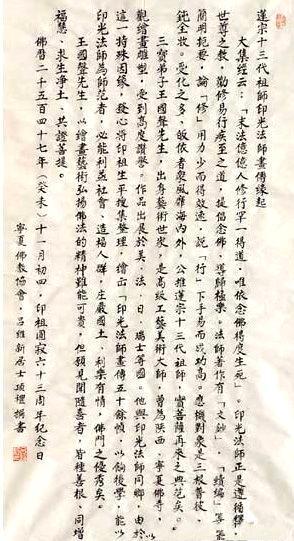 蓮宗十三代祖師印光法師畫傳緣起
大集經云：「末法億億人修行罕一得道，唯依念佛得度生死」。印光法師正是遵循釋
世尊之教，勸修易行疾至之道，提倡念佛，導歸極樂。法師著作有「文鈔」、「續編」等，能
簡明扼要，論「修」用力少而得效速，説「行」下手易而成功高。應機對象是三根普被，
鈍全攝，受化之多，皈依者眾，風靡海內外，公推蓮宗十三代祖師，實菩薩再來之典范矣。
三寶弟子王國聲先生，出身藝術世家，是高級工藝美術師，曾為陝西、寧夏佛寺，
觀繪畫雕塑，受到高度讚譽。作品出展於美、法、日、瑞士等國。他與印光法師同鄉，由於
這一特殊因緣，發心將印祖生平搜集整理，繪出「印光法師畫傳五十餘幀，以餉後學，能以
印光法師為師范者，必能利益社會、造福人群，莊嚴國土，利樂有情，佛門之優秀矣。
王國聲先生，以繪畫藝術弘揚佛法的精神難能可貴，但願見聞隨喜者，皆種善根，同增
福慧，求生淨土，共證菩提。
佛曆二千五百四十七年（癸未）十一月初四，印祖圓寂六十三周年紀念日
寧夏佛教協會，呂維新居士頂禮撰書